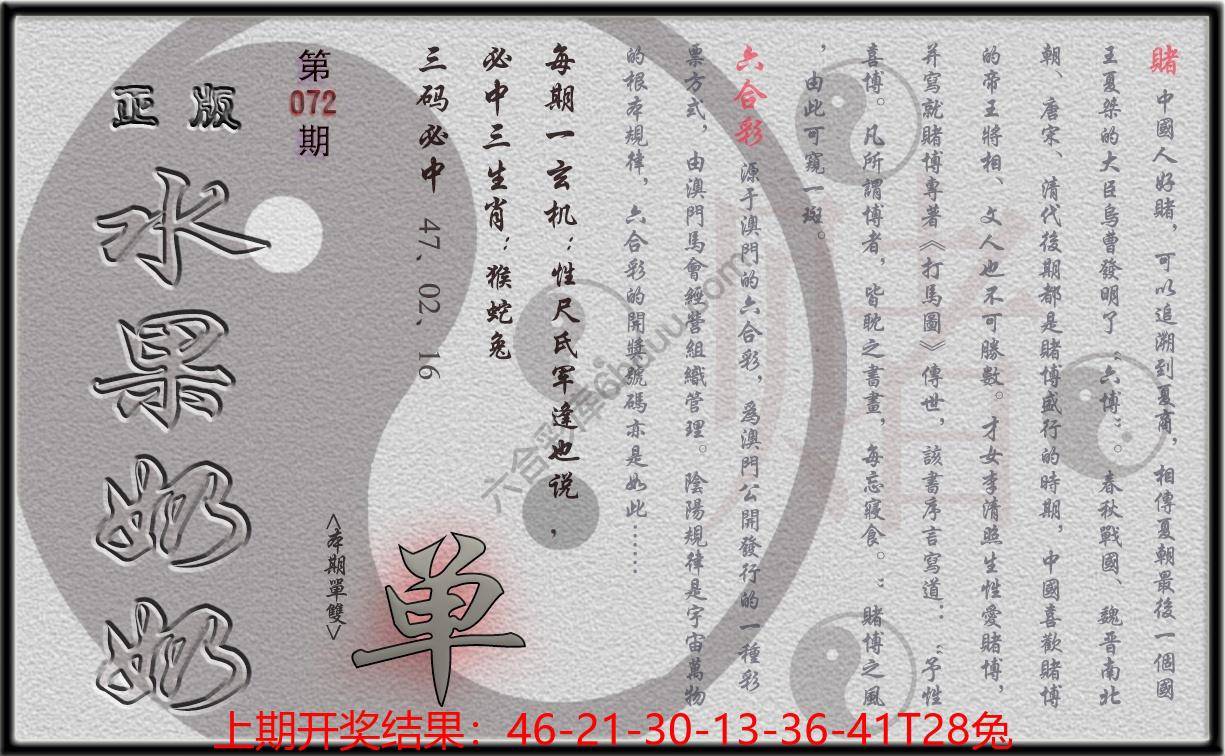 賭 中國人好賭，可以追溯到夏商，相傳夏朝最後一個國
王夏桀的大臣烏曹發明了“六博”。春秋戰國、魏晋南北
朝、唐宋、清代後期都是賭博盛行的時期，中國喜歡賭博
的帝王將相、文人也不可勝數。才女李清照生性愛賭博，
并寫就賭博專著《打馬圖》傳世，該書序言寫道：“予性
喜博。凡所謂博者，皆耽之書晝，每忘寢食。”賭博之風
，由此可窺一斑。
六合彩 源于澳門的六合彩，爲澳門公開發行的一種彩
票方式，由澳門馬會經營組織管理。陰陽規律是宇宙萬物
的根本規律，六合彩的開獎號碼亦是如此……
每期一玄机：性尺氏军逢也说，
必中三生肖：猴蛇兔
三码必中 47、02、16
第
072
期
正版
水果奶奶
<本期單雙>
单
六合彩库6huuu.com
上期开奖结果：46-21-30-13-36-41T28兔